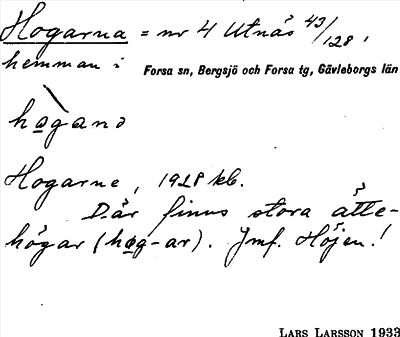 Hogarna = nr 4 Utnäs 43/128,
hemman i Forsa sn, Bergsjö och Forsa tg, Gävleborgs län
Hogarne, 1928 kb.
Där finns stora ätte-
högar (høg-ar). Jmf. Höjen!
LARS LARSSON 1933